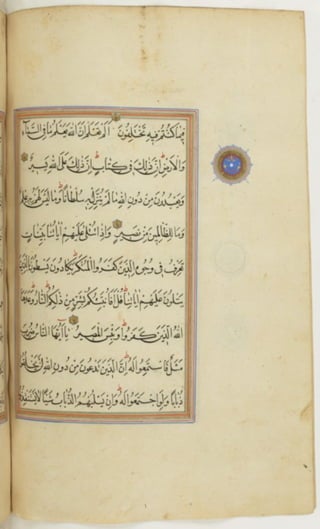 فيما كنتم فيه تختلفون الم تعلم ان الله يعلم ما فى السماء
والارض ان ذلك فى كتاب ان ذلك على الله يسير
ويعبدون من دون الله ما لم ينزل به سلطانا وما ليس لهم به علم
وما للظالمين من نصير واذا تتلى عليهم اياتنا بينات
تعرف فى وجوه الذين كفروا المنكر يكادون يسطون بالذين
يتلون عليهم اياتنا قل افانبئكم بشر من ذلكم النار وعدها
الله الذين كفروا وبئس المصير يا ايها الناس ضرب
مثل فاستمعوا له ان الذين تدعون من دون الله لن يخلقوا
ذبابا ولو اجتمعوا له وان يسلبهم الذباب شيئا لا يستنقذوه